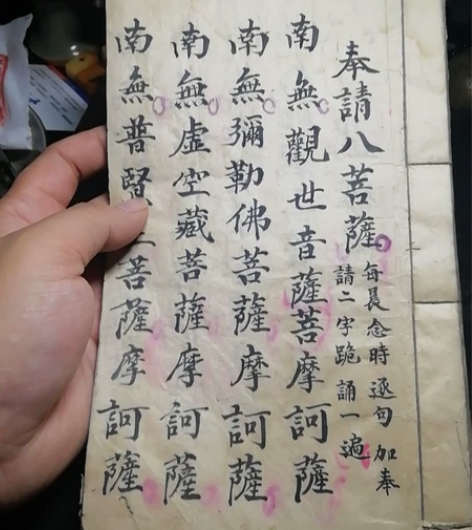 奉請八菩薩
每晨念時逐句加奉
請二字跪誦一遍
南無觀世音薩菩摩訶薩
南無彌勒佛菩薩摩訶薩
南無虛空藏菩薩摩訶薩
南無普賢菩薩摩訶薩